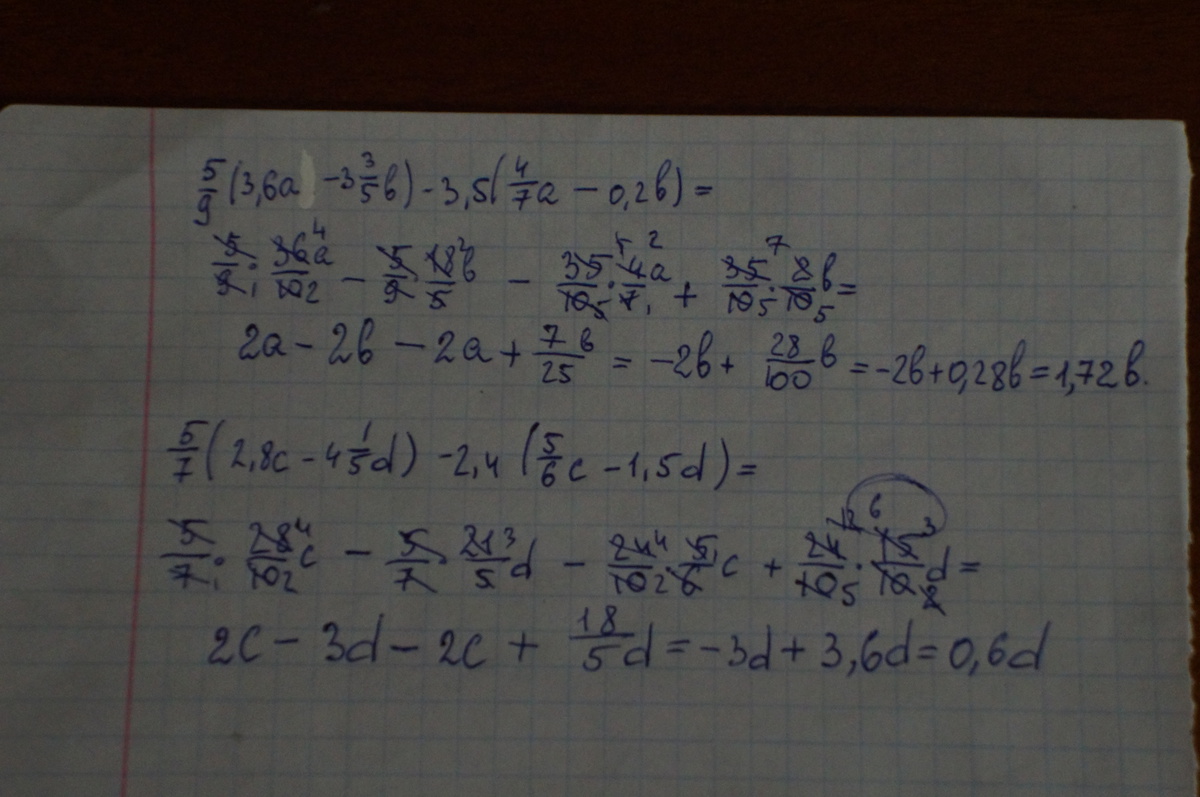 5/9 (3,6a - 3 3/5 в) - 3,5 (4/7 a - 0,2в) =
5/9 · 36/10 a - 5/9 · 18/5 в - 35/10 · 4/7 a + 35/10 · 2/10 в =
2a - 2в - 2a + 7/25 в = -2в + 28/100 в = -2в + 0,28в = 1,72в.
5/7 (2,8c - 4 1/5 d) - 2,4 (5/6 c - 1,5d) =
5/7 · 28/10 c - 5/7 · 21/5 d - 24/10 · 5/6 c + 24/10 · 15/10 d =
2c - 3d - 2c + 18/5 d = -3d + 3,6d = 0,6d